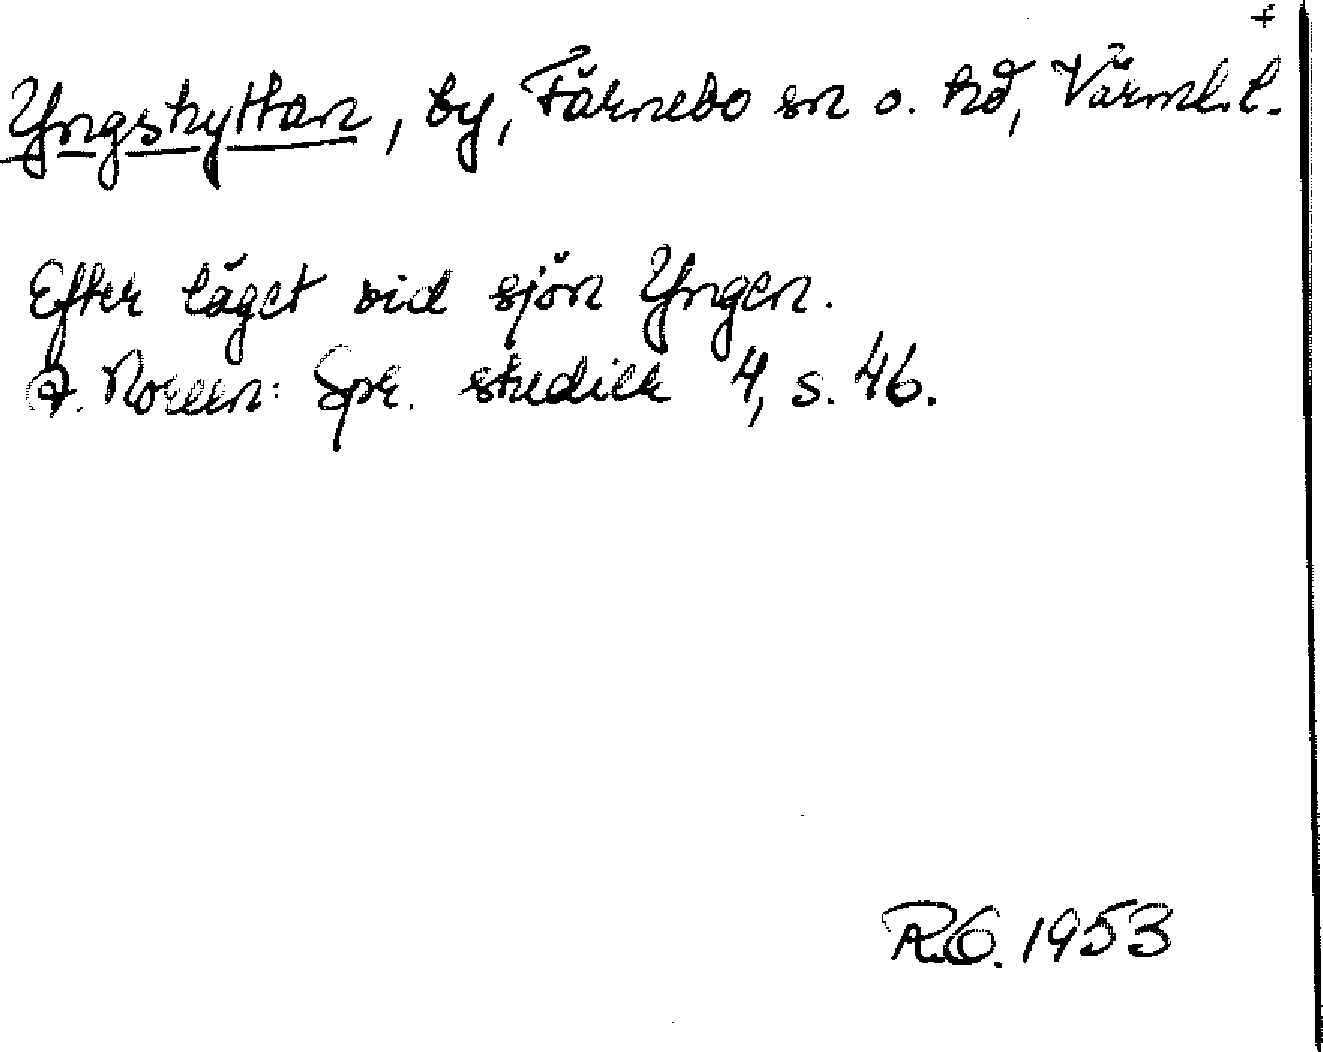 +
Yngshyttan, by, Färnebo sn o. hd, Värml. l.
Efter läget vid sjön Yngen.
A. Noreen: Spr. studier 4, s. 46.
R.O. 1953